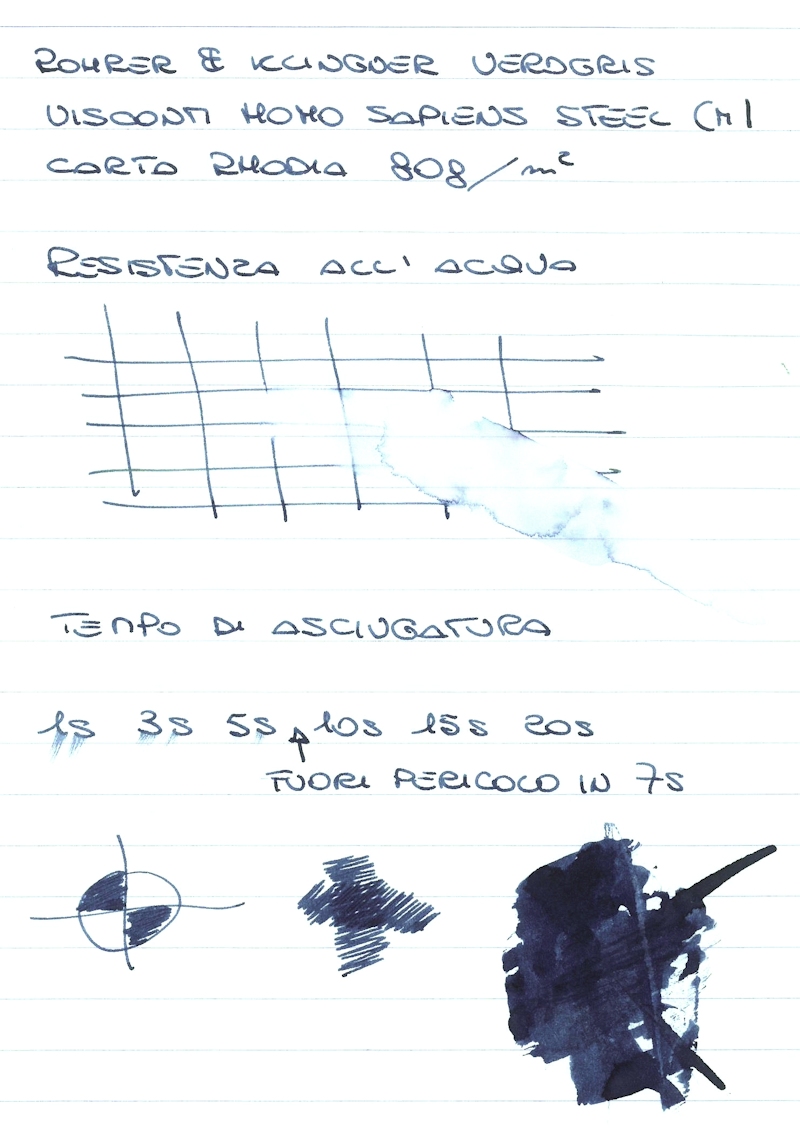 ROHRER & KLINGNER VERDGRIS
VISCONTI HOMO SAPIENS STEEL (M)
CARTA RHODIA 80g/m²
RESISTENZA ALL' ACQUA
TEMPO DI ASCIUGATURA
1s 3s 5s 10s 15s 20s
FUORI PERICOLO IN 7s